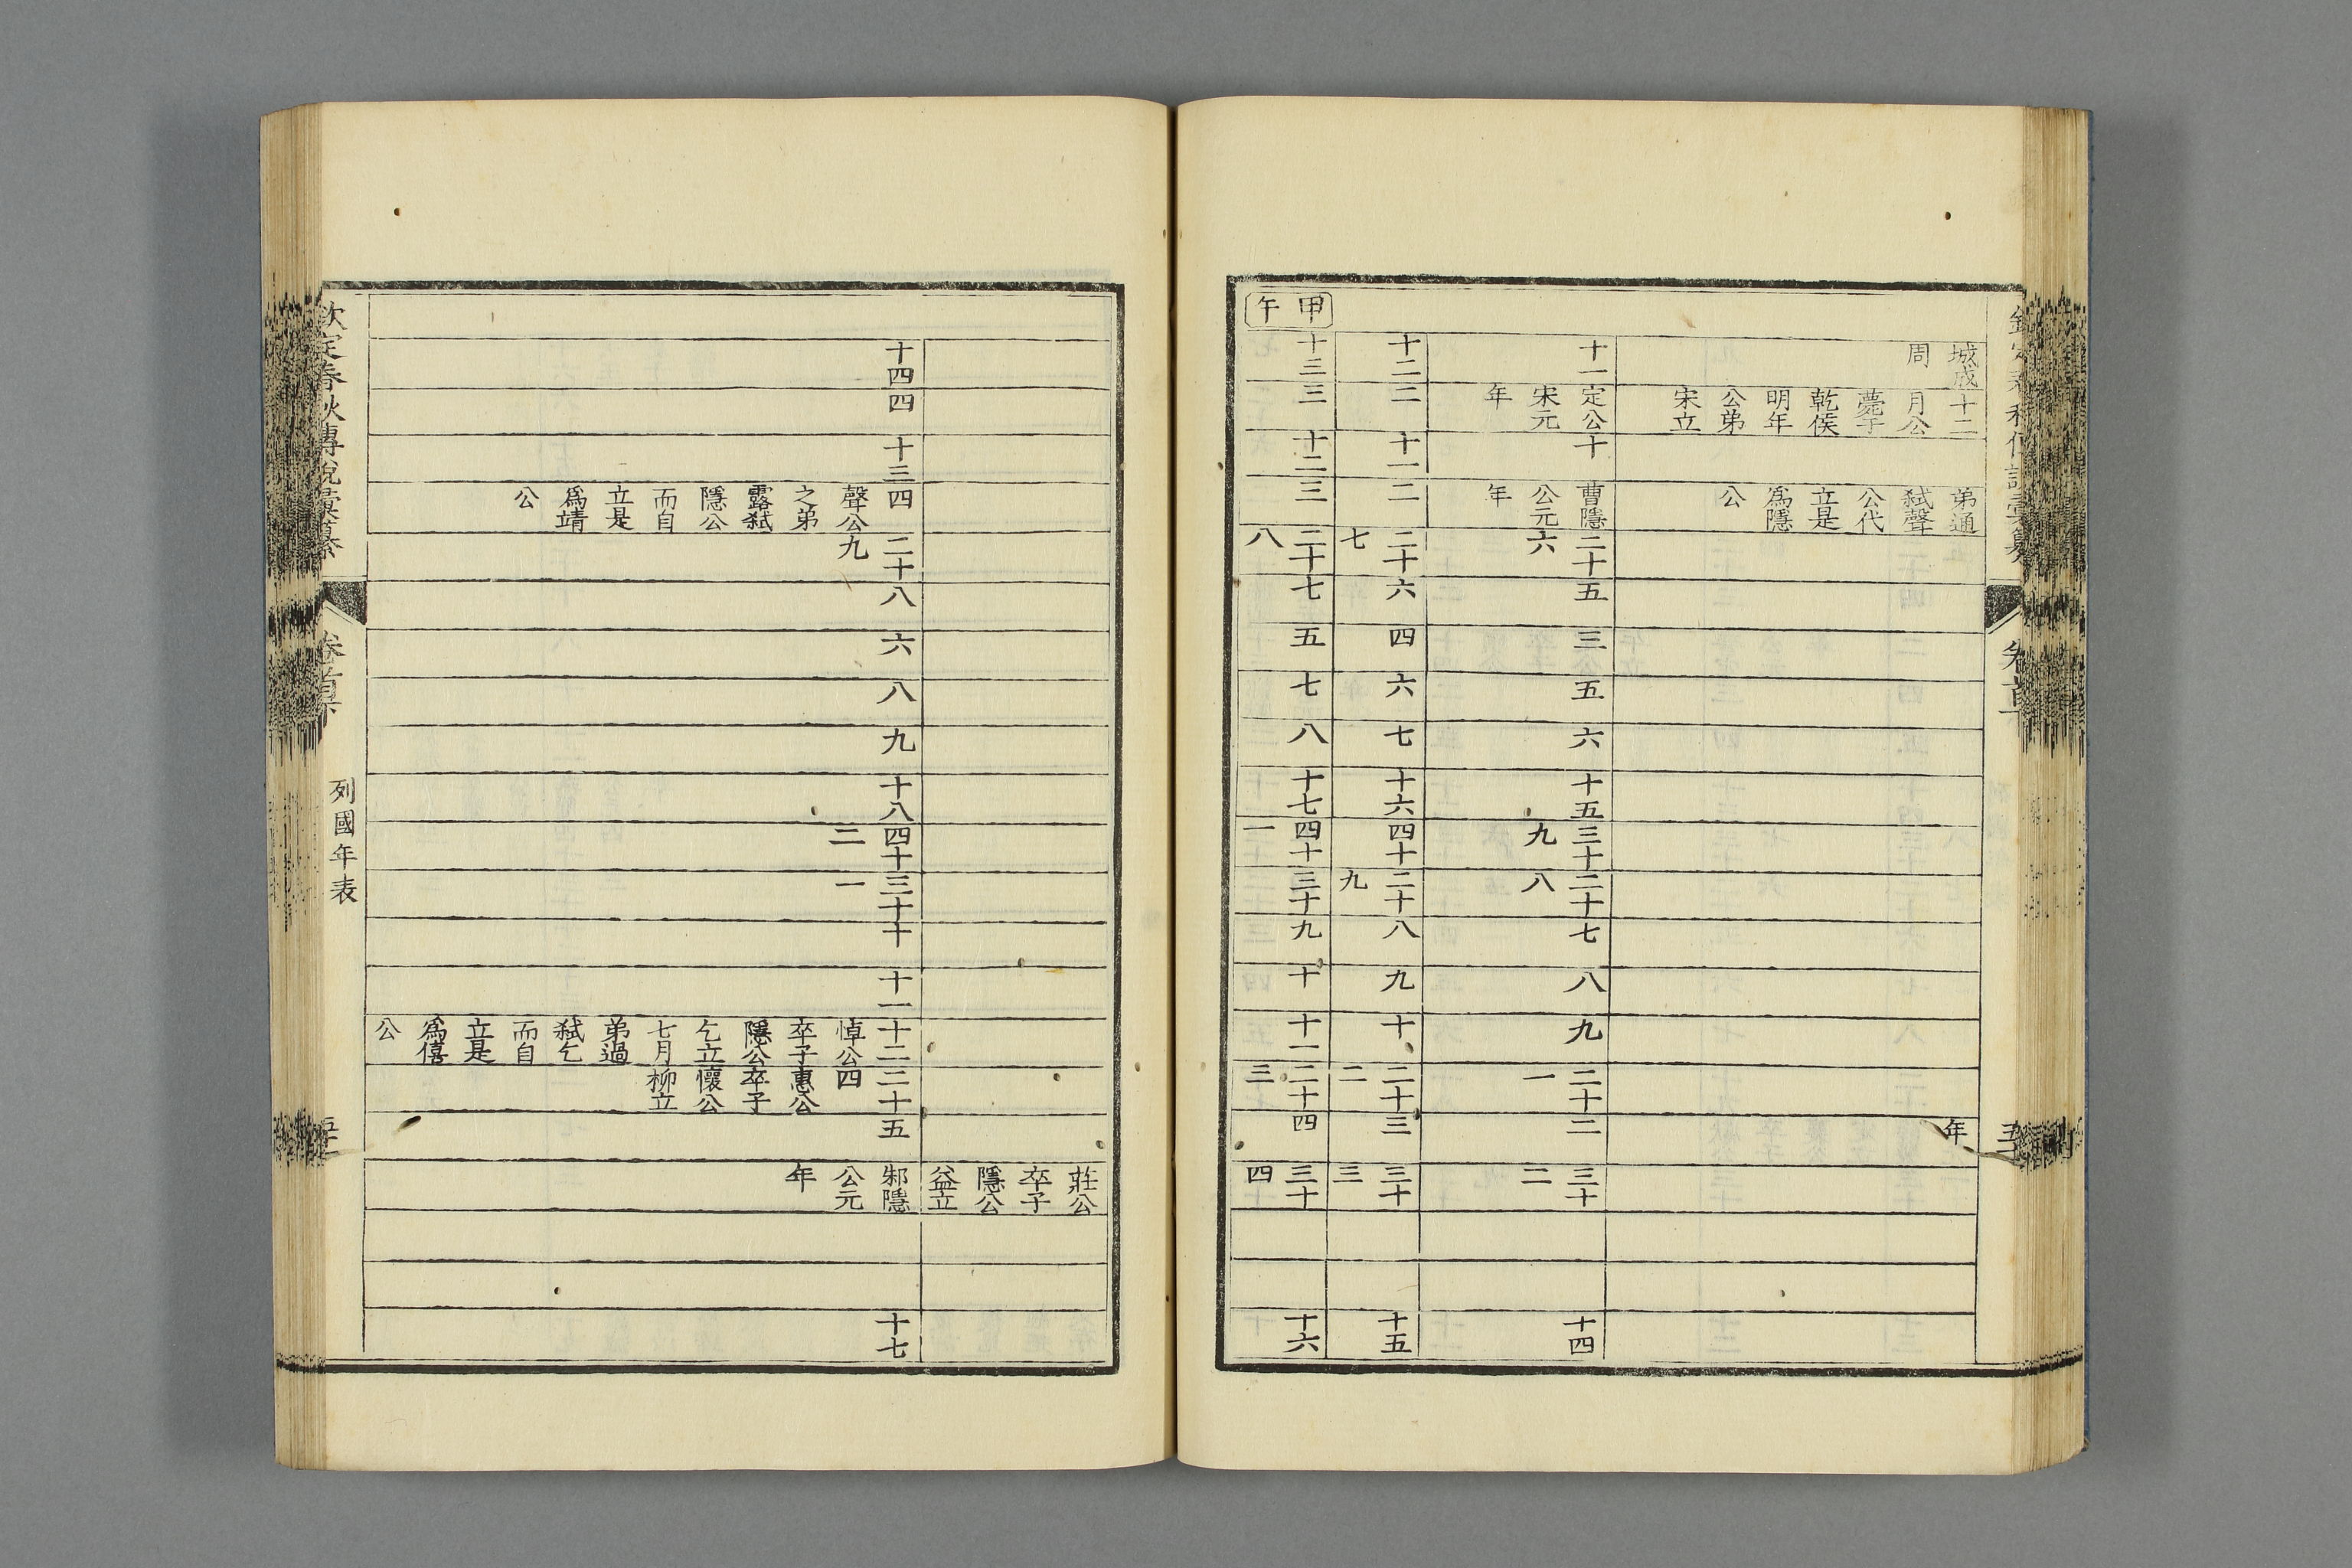 城成十二弟通年
周月公弑聲
薨于公代
乾侯立是
明年爲隱
公弟公
宋立
十一定公十曹隱二十五三五六十五三十二十七八九二十二三十十四
宋元公元六九八一二
年年
十二二十一二二十六四六七十六四十二十八九十二十三三十十五
七九二三
甲十三三十二三二十七五七八十七四十三十九十十一二十四三十十六
午八一三四
莊公
卒子
隱公
益立
十四四十三四二十八六八九十八四十三十十十一十二二十五邾隱十七
聲公九二一悼公四公元
之弟卒子惠公年
露弑隱公卒子
隱公乞立懷公
而自七月柳立
立是弟過
爲靖弑乞
公而自
立是
爲僖
公
欽定春秋傳說彙纂 卷首下 列國年表